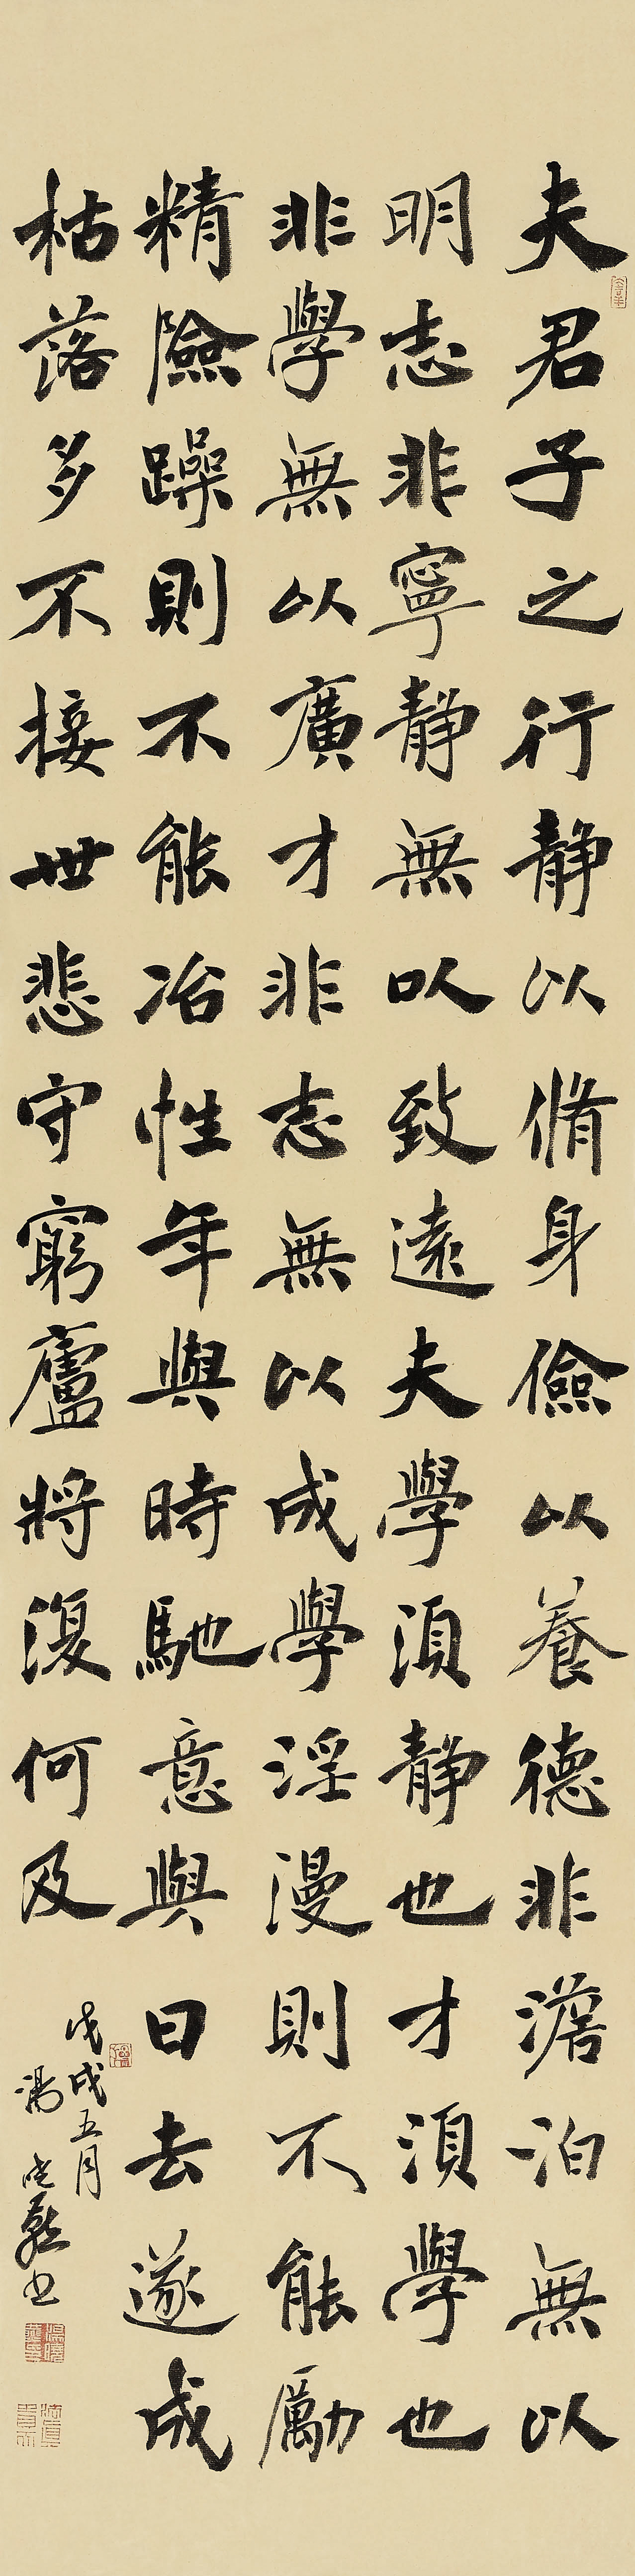 夫君子之行静以脩身儉以養德非澹泊無以
明志非寧静無以致遠夫學須静也才須學也
非學無以廣才非志無以成學淫漫則不能勵
精險躁則不能冶性年與時馳意與日去遂成
枯落多不接世悲守窮廬將復何及
戊戌五月